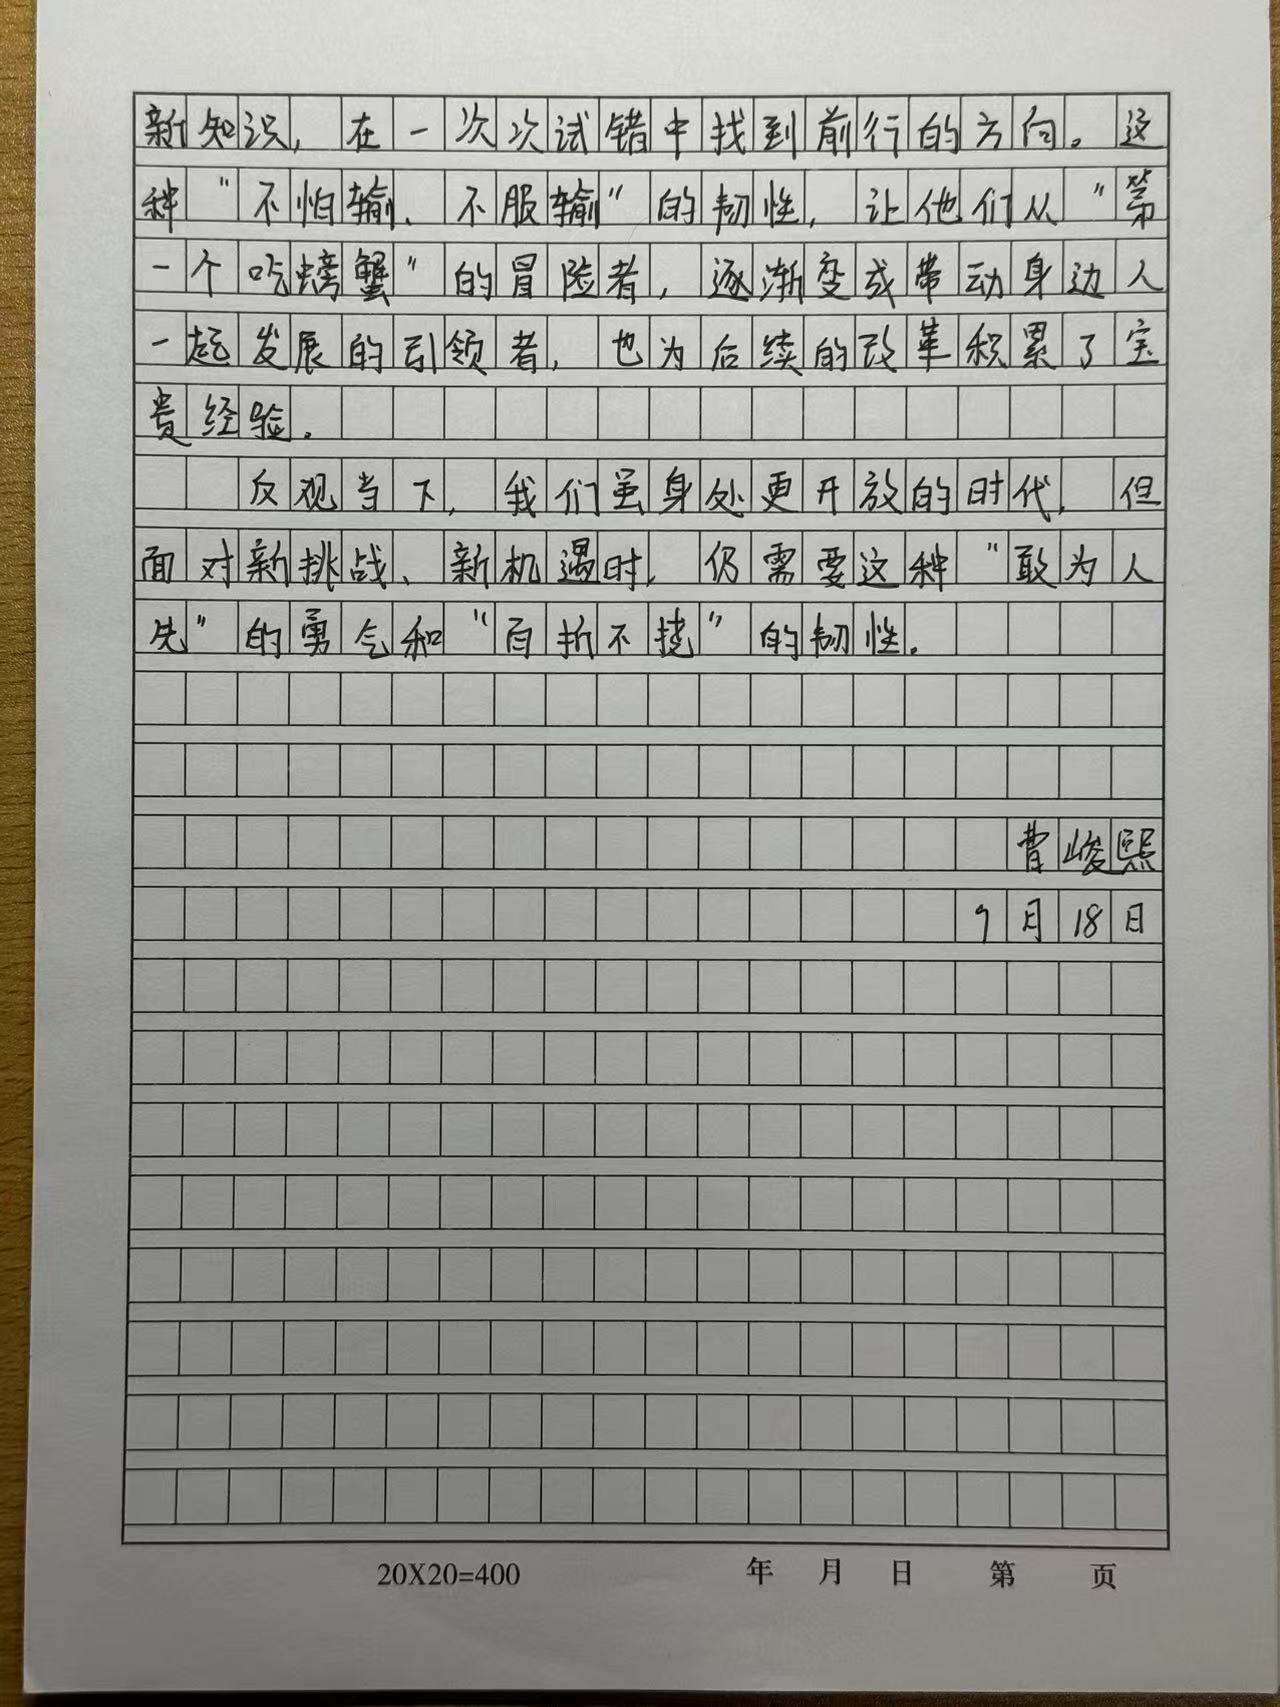 新知识,在一次次试错中找到前行的方向。这
种“不怕输、不服输”的韧性,让他们从“第
一个吃螃蟹”的冒险者,逐渐变成带动身边人
一起发展的引领者,也为后续的改革积累了宝
贵经验。
反观当下,我们虽身处更开放的时代,但
面对新挑战、新机遇时,仍需要这种“敢为人
先”的勇气和“百折不挠”的韧性。
曹峻熙
9月18日
20X20=400 年 月 日 第 页